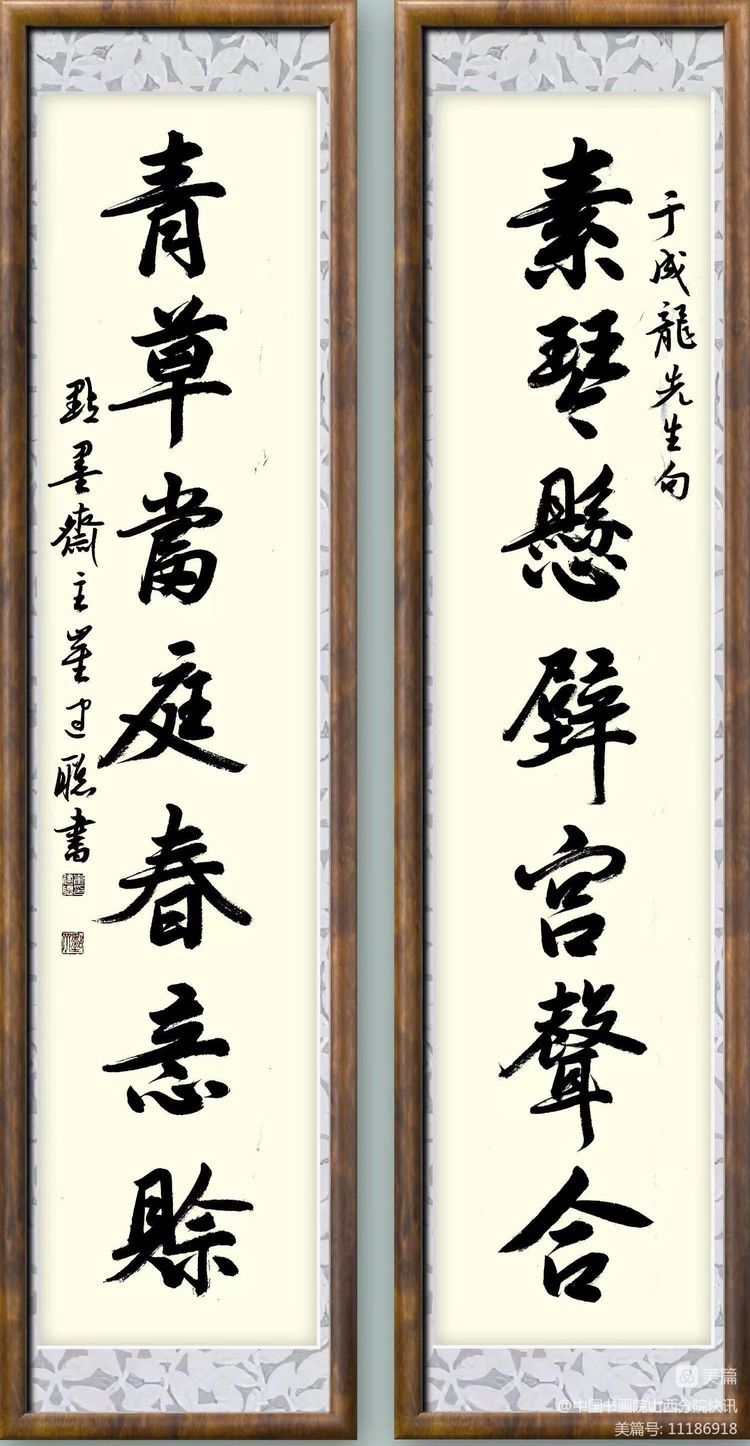 于成龍先生句
素琴懸壁宮聲合
青草當庭春意賒
點墨齋主崔建聰書
美篇
@中国书画院山西分院快讯
美篇号: 11186918